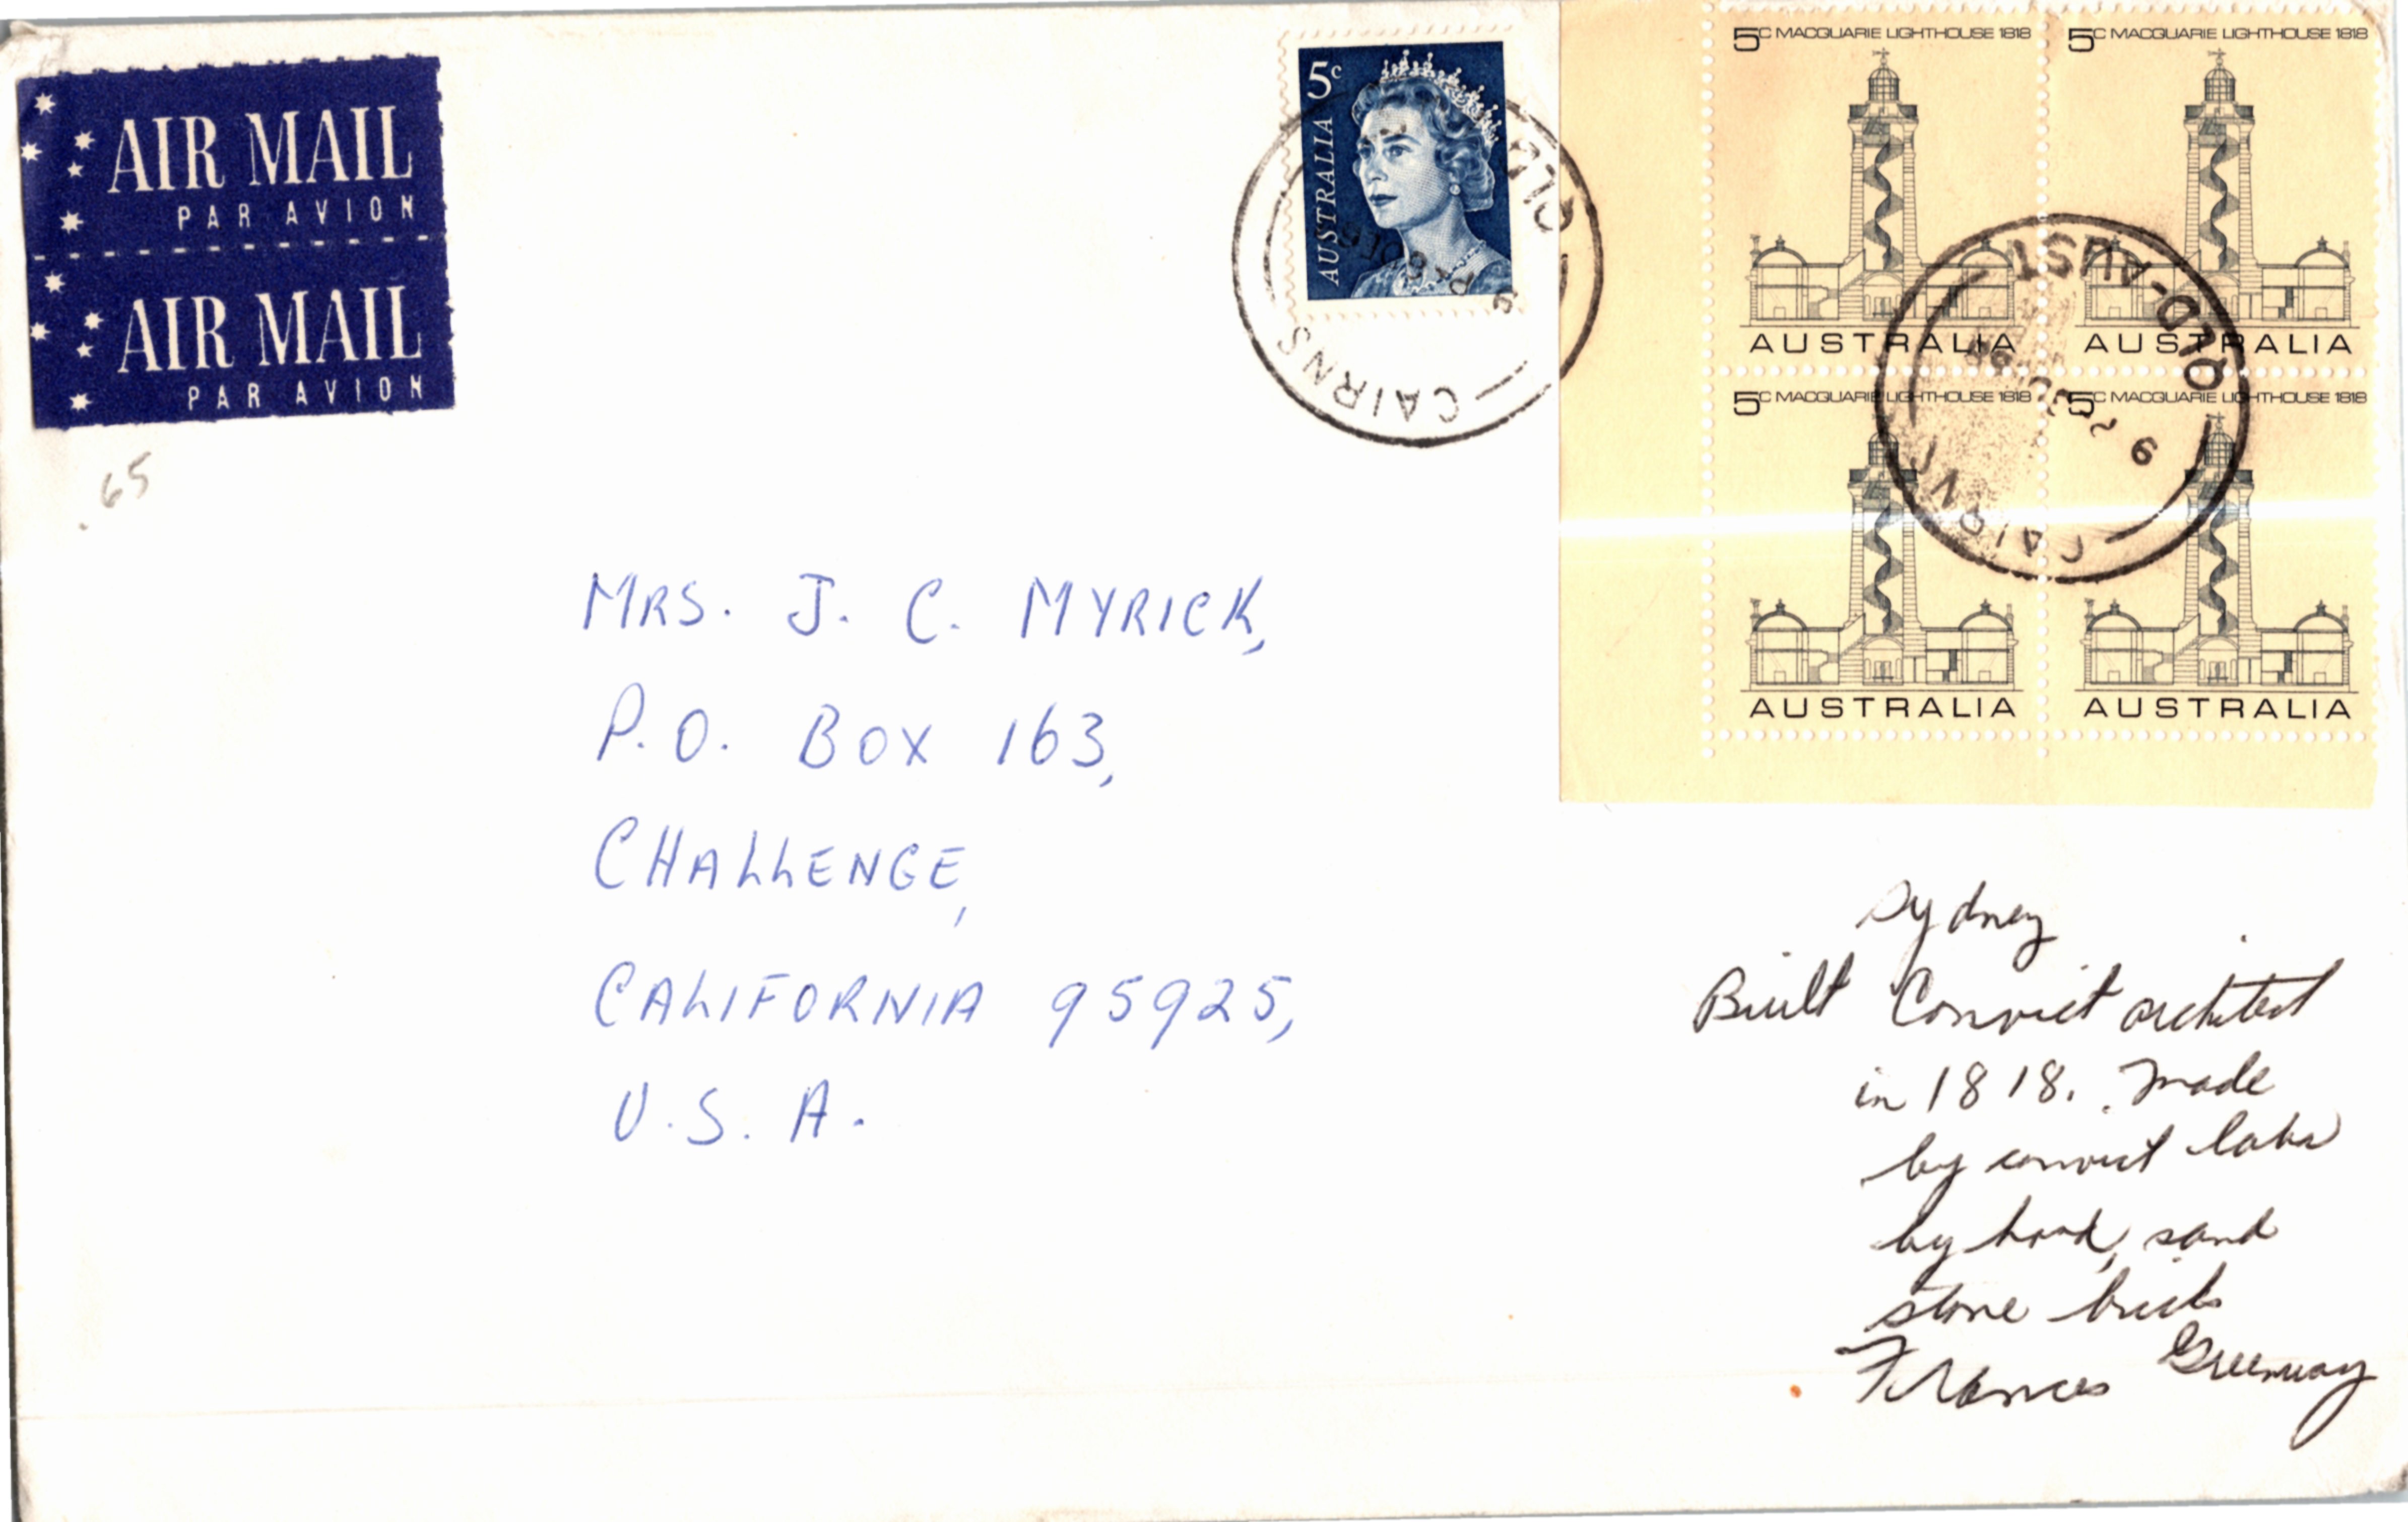 AIR MAIL
PAR AVION
AIR MAIL
PAR AVION
.65
5c
AUSTRALIA
QLD
CAIRNS
5C MACQUARIE LIGHTHOUSE 1818
AUSTRALIA
5C MACQUARIE LIGHTHOUSE 1818
AUSTRALIA
5C MACQUARIE LIGHTHOUSE 1818
AUSTRALIA
5C MACQUARIE LIGHTHOUSE 1818
AUSTRALIA
QLD-AUST
CAIRNS
MRS. J. C. MYRICK,
P.O. BOX 163,
CHALLENGE,
CALIFORNIA 95925,
U.S.A.
Sydney
Built Convict architect
in 1818. Made
by convict labor
by hand, sand
stone bricks
Frances Greenway